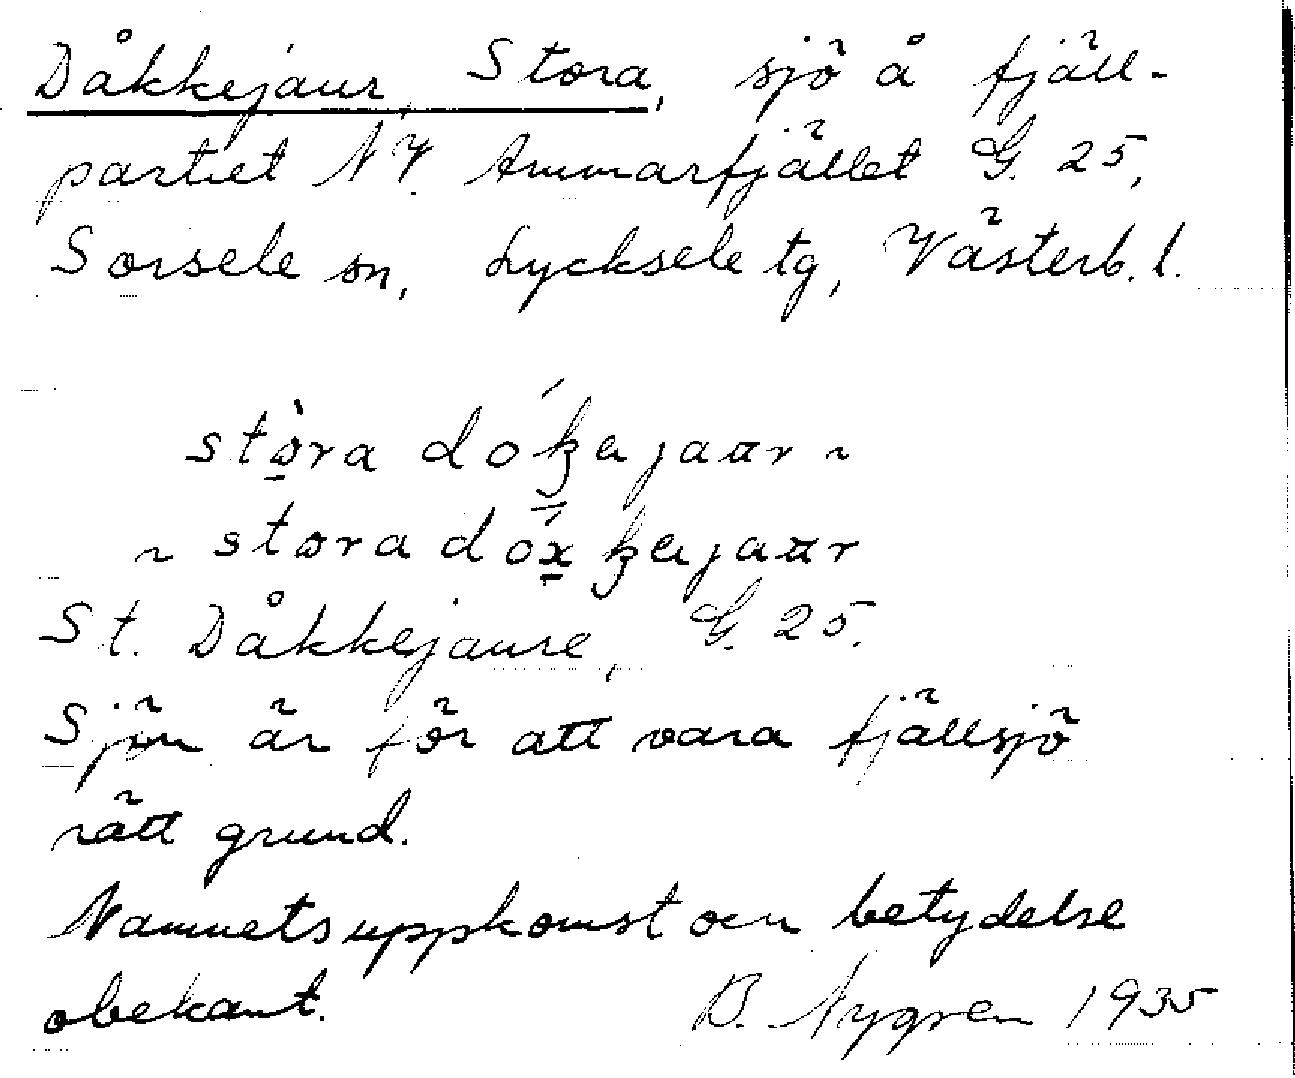 Dåkkejaur, Stora, sjö å fjäll-
partiet NV. Ammarfjället G. 25,
Sorsele sn, Lycksele tg, Västerb. l.
stòra dókejaur ~
~ stora dóxkejaur
St. Dåkkejaure, G. 25.
Sjön är för att vara fjällsjö
rätt grund.
Namnets uppkomst och betydelse
obekant. B. Nygren 1935